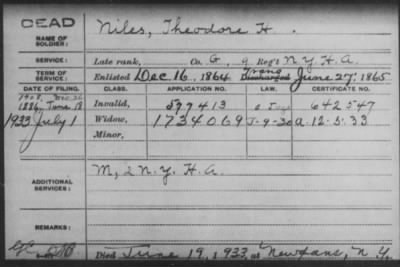 DEAD
NAME OF SOLDIER: Niles, Theodore H.
SERVICE: Late rank, Co. G, 9 Reg't N.Y.H.A.
TERM OF SERVICE: Enlisted Dec. 16, 1864 Trans Discharged June 27, 1865
DATE OF FILING. CLASS. APPLICATION NO. LAW. CERTIFICATE NO.
1908, Dec. 26
1886, June 18 Invalid, 597413 642547
1933 July 1 Widow, 1734069 J-9-30 A. 12-5-33
Minor,
ADDITIONAL SERVICES: M, 2 N.Y. H.A.
REMARKS:
Died June 19, 1933, at Newfane, N.Y.